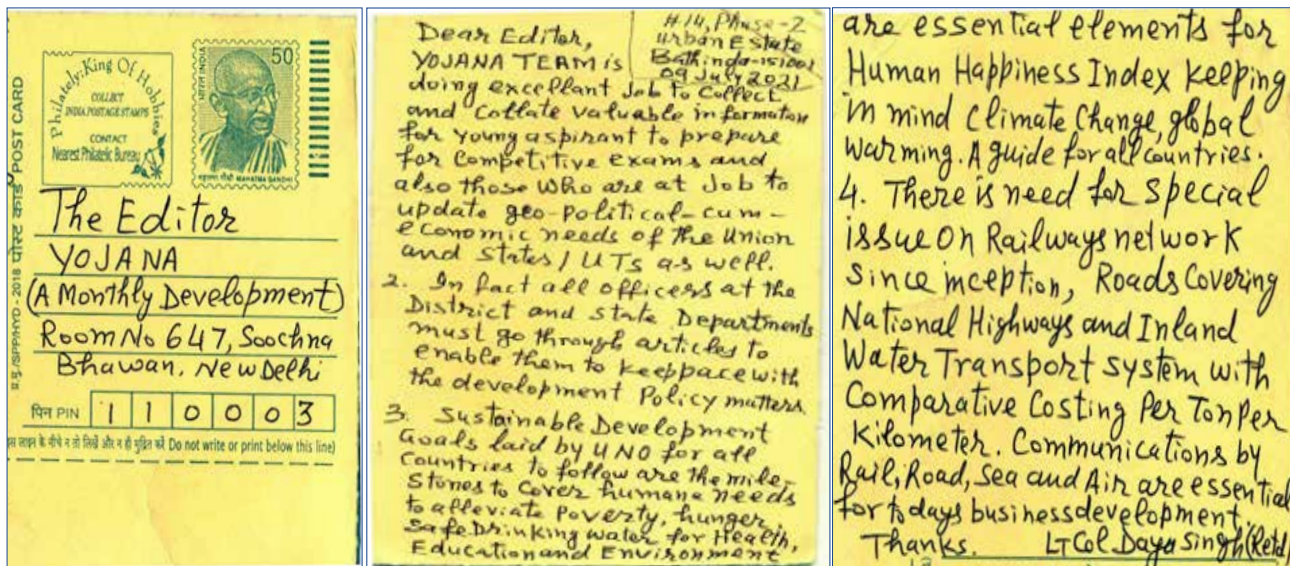 Philately: King Of Hobbies
COLLECT
INDIA POSTAGE STAMPS
CONTACT
Nearest Philatelic Bureau
50
भारत INDIA
महात्मा गाँधी MAHATMA GANDHI
पोस्ट कार्ड POST CARD
SPP/HYD - 2018
The Editor
YOJANA
(A Monthly Development)
Room No 647, Soochna
Bhawan, New Delhi
पिन PIN 1 1 0 0 0 3
लाइन के नीचे न तो लिखें और न ही मुद्रित करें Do not write or print below this line)
H.14, Phase-2
Urban Estate
Bathinda-151001
09 July 2021
Dear Editor,
YOJANA TEAM is
doing excellant Job to Collect
and Collate valuable information
for young aspirant to prepare
for Competitive exams and
also those who are at Job to
update geo-political-cum-
economic needs of the Union
and States/UTs as well.
2. In fact all officers at the
District and State Departments
must go through articles to
enable them to keep pace with
the development Policy matters.
3. Sustainable Development
Goals laid by UNO for all
Countries to follow are the mile-
stones to Cover humane needs
to alleviate Poverty, hunger,
Safe Drinking water for Health,
Education and Environment
are essential elements for
Human Happiness Index Keeping
in mind Climate Change, global
warming. A guide for all countries.
4. There is need for special
issue On Railways network
since inception, Roads Covering
National Highways and Inland
Water Transport system with
Comparative Costing Per Ton Per
Kilometer. Communications by
Rail, Road, Sea and Air are essential
for todays business development.
Thanks. LT Col Daya Singh (Retd)